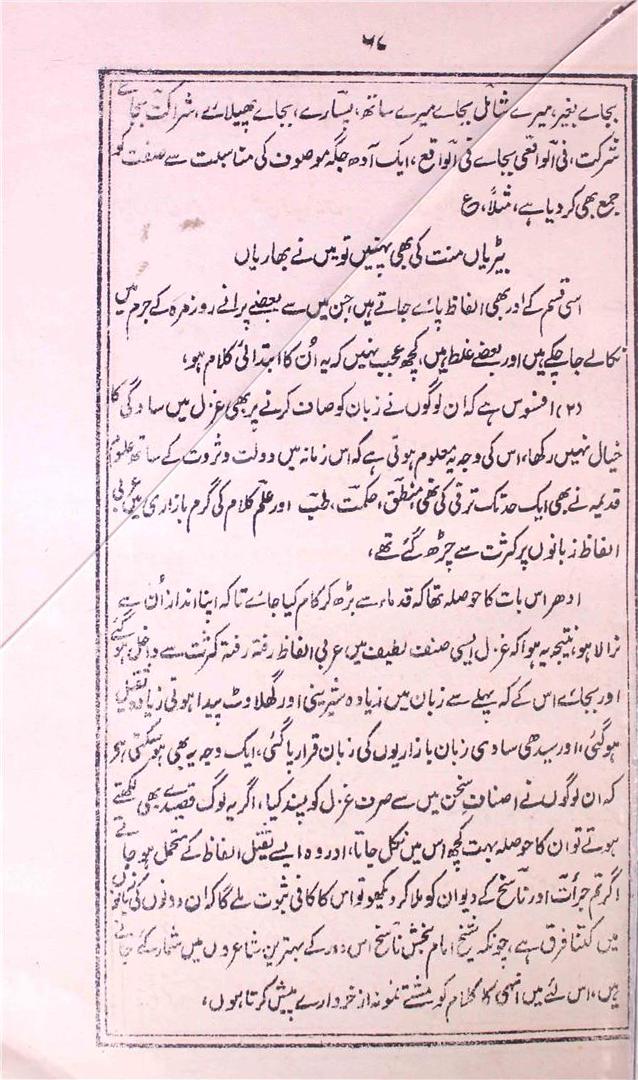 ۶۸
بجاے بغیر، میرے شامل بجاے میرے ساتھ، پسارے، بجاے پھیلاے، شراکت بجاے
شرکت، فی الواقعی بجاے فی الواقع، ایک آدھ جگہ موصوف کی مناسبت سے صفت کو
جمع بھی کر دیا ہے، مثلاً، ع
بیڑیاں منت کی بھی پہنیں تو میں نے بھاریاں
اسی قسم کے اور بھی الفاظ پائے جاتے ہیں، جن میں سے بعضے پرانے روزمرہ کے جرم میں
نکالے جا چکے ہیں اور بعضے غلط ہیں، کچھ عجب نہیں کہ یہ اُن کا ابتدائی کلام ہو،
(۲) افسوس ہے کہ ان لوگوں نے زبان کو صاف کرنے پر بھی غزل میں سادگی کا
خیال نہیں رکھا، اس کی وجہ یہ معلوم ہوتی ہے کہ اس زمانہ میں دولت و ثروت کے ساتھ علوم
قدیمہ نے بھی ایک حد تک ترقی کی تھی، منطق، حکمت، طب اور علم کلام کی گرم بازاری میں عربی
الفاظ زبانوں پر کثرت سے چڑھ گئے تھے،
ادھر اس بات کا حوصلہ تھا کہ قدماء سے بڑھ کر کام کیا جاے تاکہ اپنا انداز اُن سے
نرالا ہو، نتیجہ یہ ہوا کہ غزل ایسی صنف لطیف میں، عربی الفاظ رفتہ رفتہ کثرت سے داخل ہو گئے
اور بجائے اس کے کہ پہلے سے زبان میں زیادہ شیرینی اور گھلاوٹ پیدا ہوتی زیادہ ثقیل
ہو گئی، اور سیدھی سادی زبان بازاریوں کی زبان قرار پا گئی، ایک وجہ یہ بھی ہو سکتی ہے
کہ ان لوگوں نے اصناف سخن میں سے صرف غزل کو پسند کیا، اگر یہ لوگ قصیدے بھی لکھتے
ہوتے تو ان کا حوصلہ بہت کچھ اس میں نکل جاتا، اور وہ ایسے ثقیل الفاظ کے متحمل ہو جاتے
اگر تم جرأت اور ناسخ کے دیوان کو ملا کر دیکھو تو اس کا کافی ثبوت ملے گا کہ ان دونوں کی زبان
میں کتنا فرق ہے، چونکہ شیخ امام بخش ناسخ اس دور کے بہترین شاعروں میں شمار کئے جاتے
ہیں، اس لئے میں انہی کا کلام کو مشتے نمونہ از خروارے پیش کرتا ہوں،